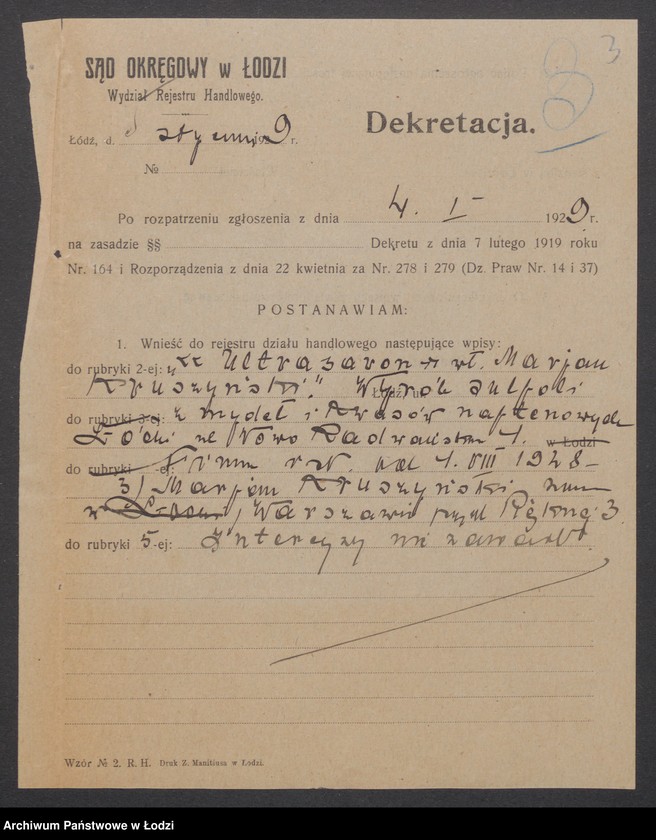 3
SĄD OKRĘGOWY w ŁODZI
Wydział Rejestru Handlowego.
Dekretacja.
Łódź, d. 1929 r.
№
Po rozpatrzeniu zgłoszenia z dnia 4. I 1929 r.
na zasadzie §§ Dekretu z dnia 7 lutego 1919 roku
Nr. 164 i Rozporządzenia z dnia 22 kwietnia za Nr. 278 i 279 (Dz. Praw Nr. 14 i 37)
POSTANAWIAM:
1. Wnieść do rejestru działu handlowego następujące wpisy:
do rubryki 2-ej: „Ultrasavon” wł. Marjan
Kruszyński." Wyrób
do rubryki 3-ej: z mydeł i kwasów naftenowych
w Łodzi
do rubryki -ej: Firma od 1. VIII 1928 –
3/ Marjan Kruszyński, zam
w Warszawie, przy ul Pięknej 3
do rubryki 5-ej: Intercyzy nie zawarł.
Wzór № 2. R. H. Druk Z. Manitiusa w Łodzi.
Archiwum Państwowe w Łodzi